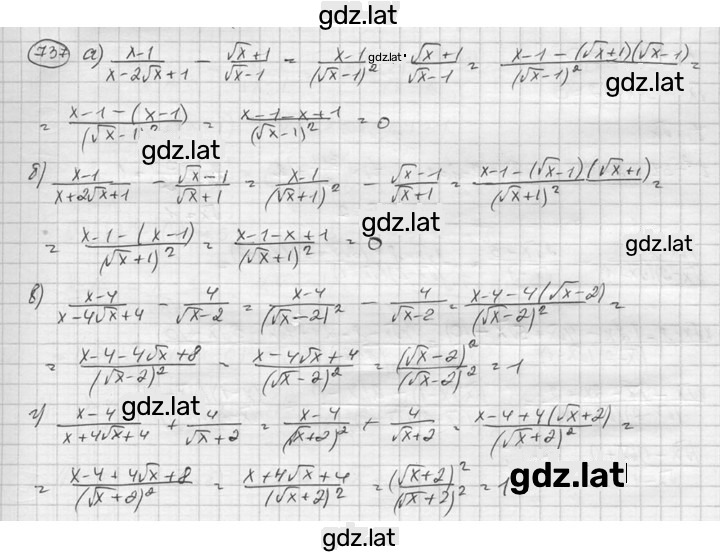 gdz.lat
737 а) (x-1)/(x-2√x+1) - (√x+1)/(√x-1) = (x-1)/(√x-1)² gdz.lat (√x+1)/(√x-1) = (x-1-(√x+1)(√x-1))/(√x-1)² =
gdz.lat
= (x-1-(x-1))/(√x-1)² = (x-1-x+1)/(√x-1)² = 0
gdz.lat
б) (x-1)/(x+2√x+1) - (√x-1)/(√x+1) = (x-1)/(√x+1)² - (√x-1)/(√x+1) = (x-1-(√x-1)(√x+1))/(√x+1)² =
gdz.lat
= (x-1-(x-1))/(√x+1)² = (x-1-x+1)/(√x+1)² = 0
gdz.lat
в) (x-4)/(x-4√x+4) - 4/(√x-2) = (x-4)/(√x-2)² - 4/(√x-2) = (x-4-4(√x-2))/(√x-2)² =
= (x-4-4√x+8)/(√x-2)² = (x-4√x+4)/(√x-2)² = (√x-2)²/(√x-2)² = 1
г) (x-4)/(x+4√x+4) + 4/(√x+2) = (x-4)/(√x+2)² + 4/(√x+2) = (x-4+4(√x+2))/(√x+2)² =
gdz.lat
= (x-4+4√x+8)/(√x+2)² = (x+4√x+4)/(√x+2)² = (√x+2)²/(√x+2)² = 1
gdz.lat
gdz.lat